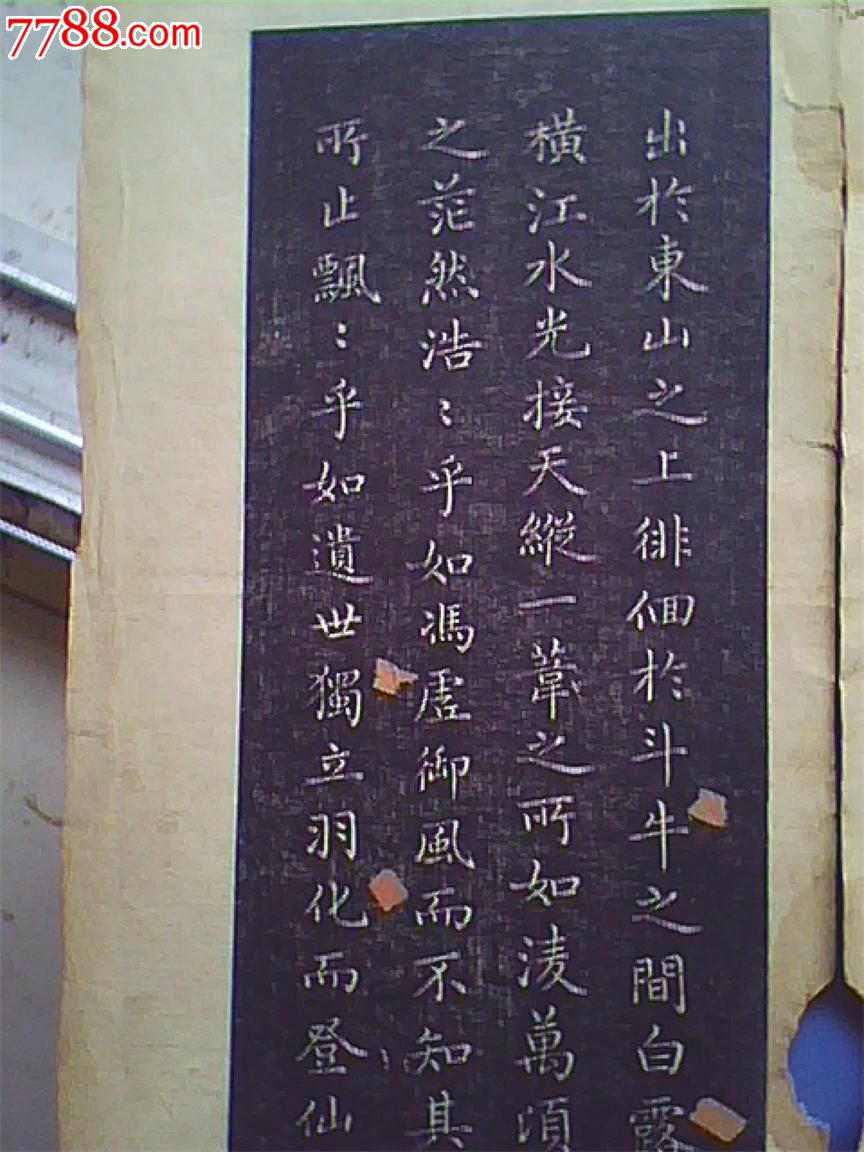 7788.com
出於東山之上徘佪於斗牛之間白露
橫江水光接天縱一葦之所如淩萬頃
之茫然浩〻乎如馮虛御風而不知其
所止飄〻乎如遺世獨立羽化而登仙